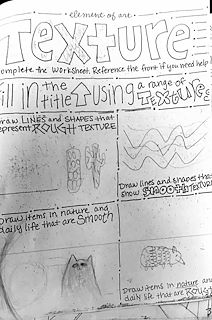 element of art
Texture
Complete the worksheet. Reference the front if you need help!
Fill in the
title using a range of
TEXTURES
Draw LINES and SHAPES that
represent ROUGH TEXTURE
Draw lines and shapes that
show SMOOTH TEXTURE
Draw items in nature and
daily life that are SMOOTH
Draw items in nature and
daily life that are ROUGH